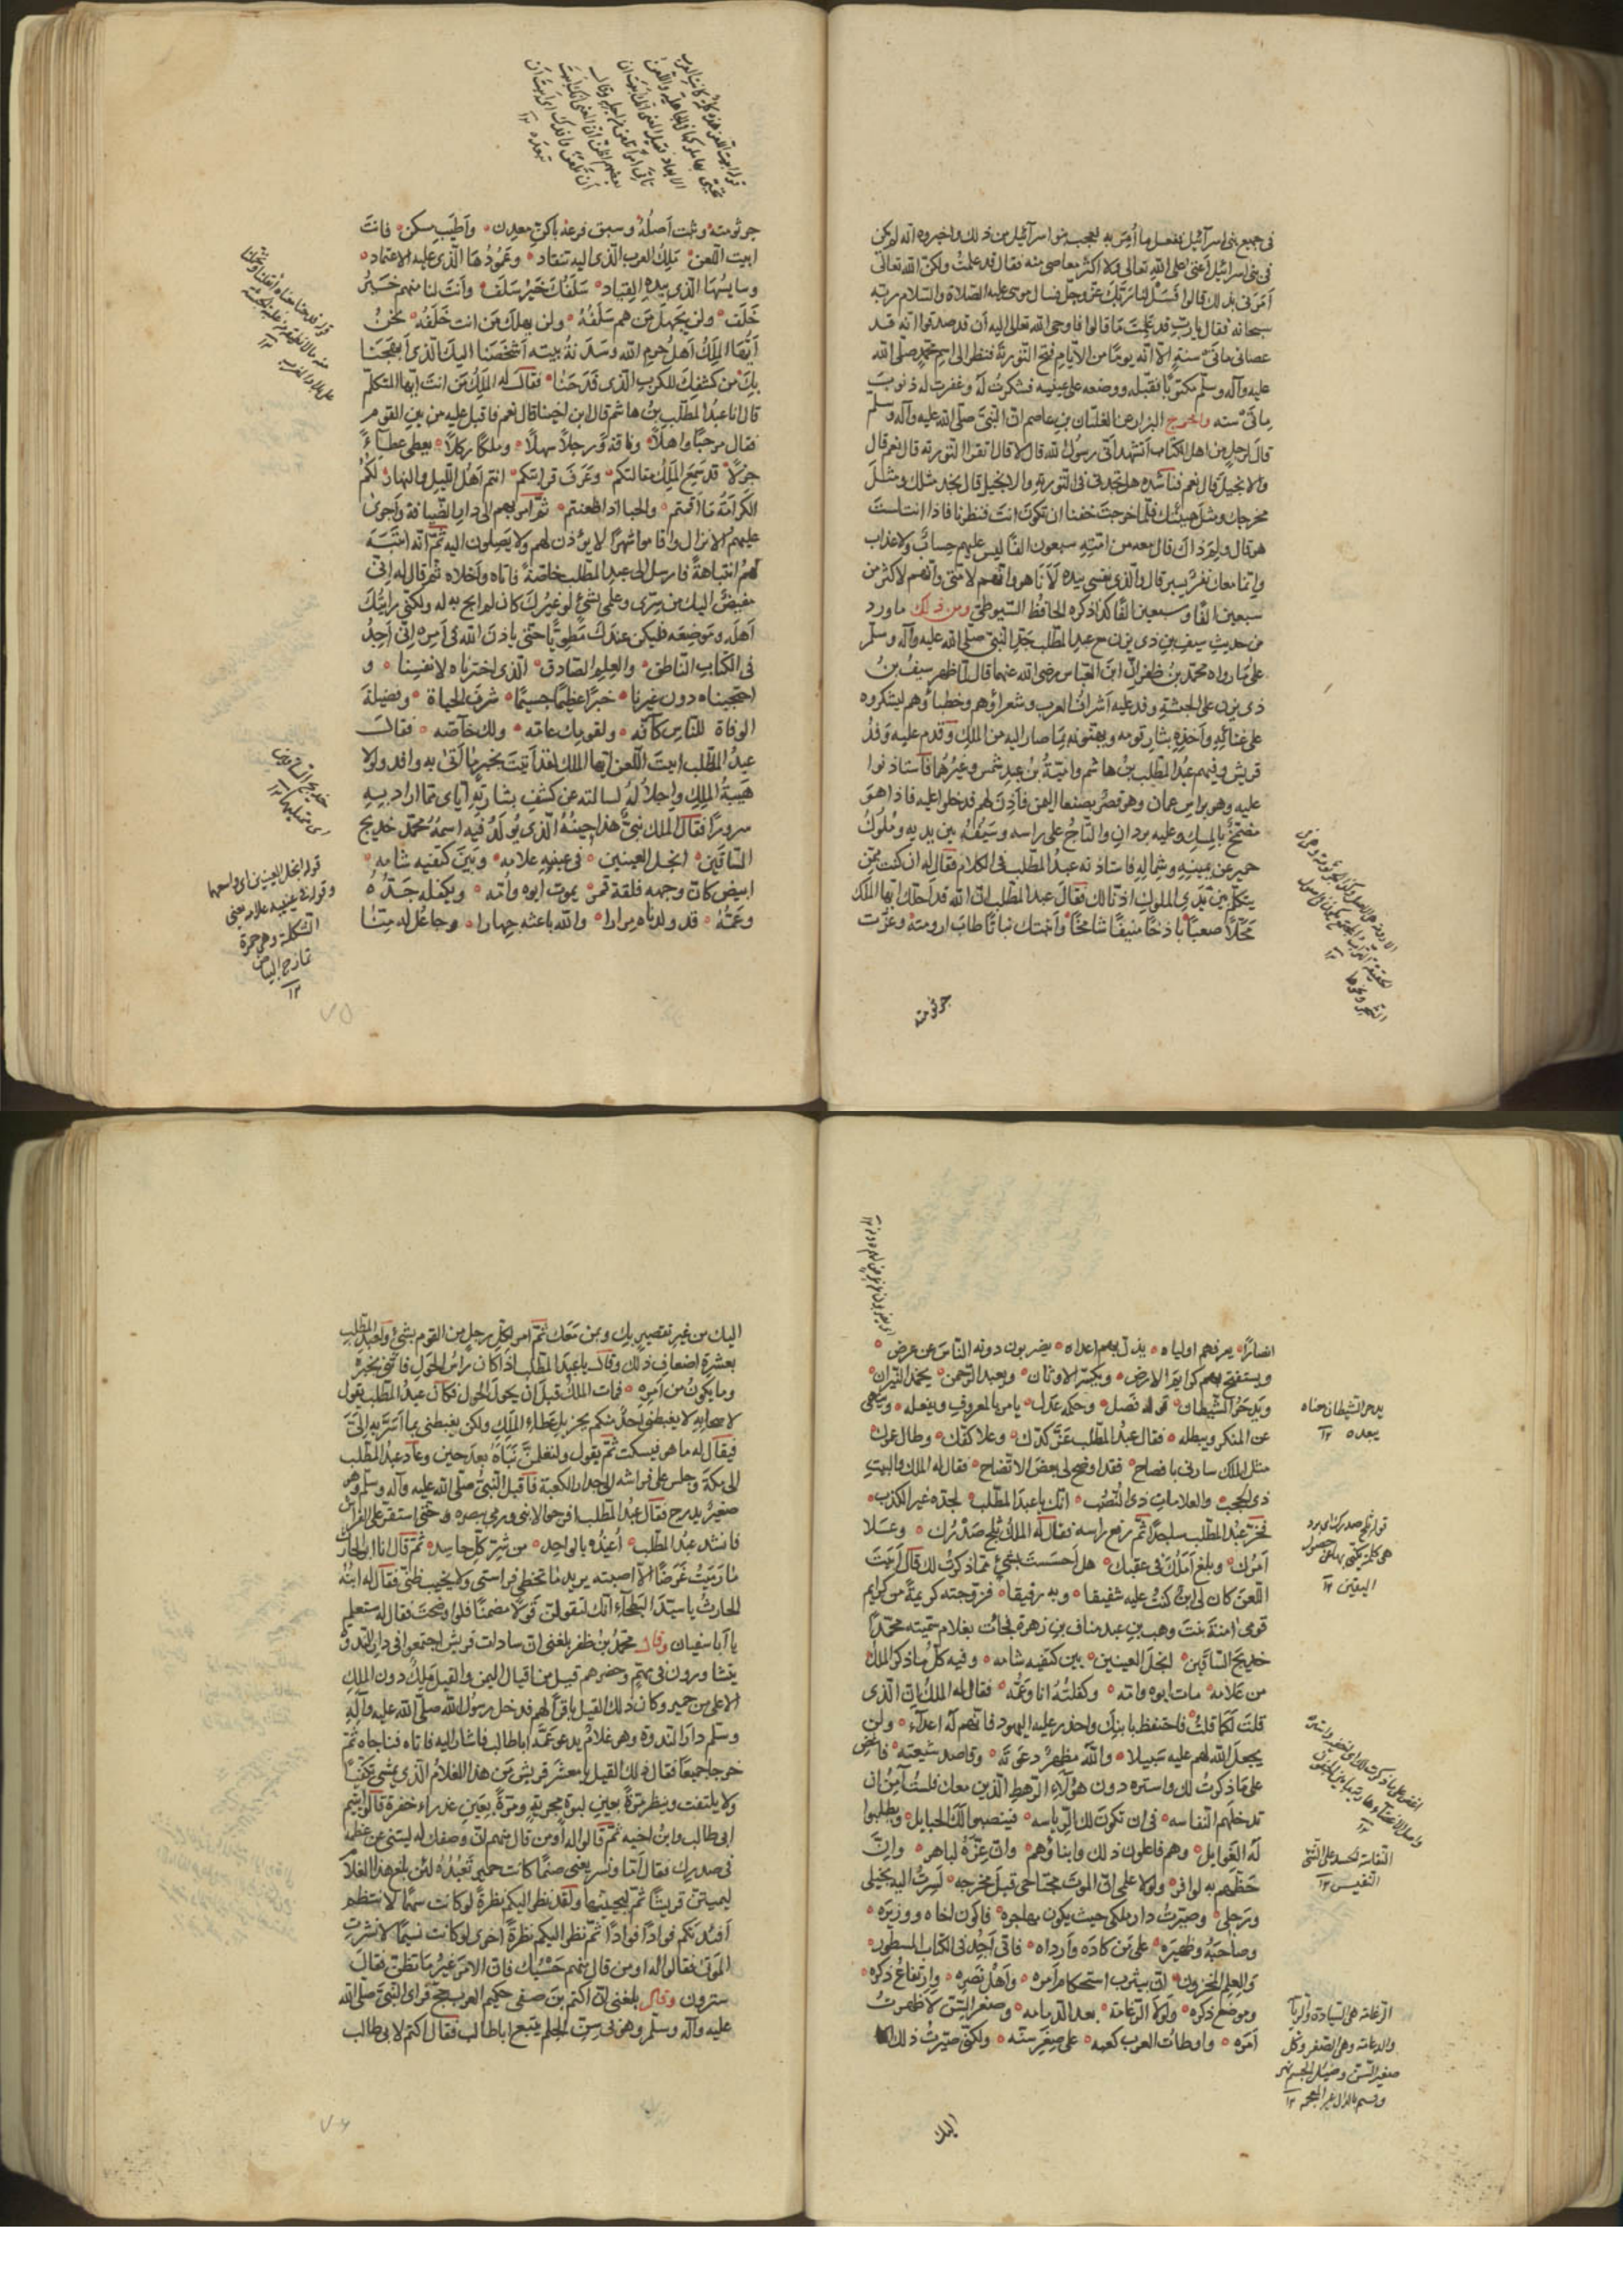 في جميع بني اسرآئيل ففعل ما أمر به فعجب بنوا اسرآئيل من ذلك واخبروه انه لم يكن
في بني اسرائيل أعتى على الله تعالى ولا اكثر معاصي منه فقال قد علمت ولكن الله تعالى
أمرني بذلك قالوا فسل لنا ربك عز وجل فسال موسى عليه الصلاة والسلام ربه
سبحانه فقال يا رب قد علمت ما قالوا فاوحى الله تعالى اليه أن قد صدقوا انه قد
عصاني مائتي سنة الا انه يوما من الايام فتح التورية فنظر الى اسم محمد صلى الله
عليه وآله وسلم مكتوبا فقبله ووضعه على عينيه فشكرت له وغفرت له ذنوب
مائتي سنة واخرج البزار عن الغلتان بن عاصم ان النبي صلى الله عليه وآله وسلم
قال لرجل من اهل الكتاب أتشهد اني رسول الله قال لا قال اتقرا التورية قال نعم قال
والانجيل قال نعم فناشده هل تجدني في التورية والانجيل قال نجد مثلك ومثل
مخرجك ومثل هيئتك فلما خرجت خفنا ان تكون انت فنظرنا فاذا انت لست
هو قال ولم ذاك قال معه من امته سبعون الفا ليس عليهم حساب ولا عذاب
وانما معك نفر يسير قال والذي نفسي بيده لأنا هو وانهم لامتي وانهم لاكثر من
سبعين الفا وسبعين الفا كذا ذكره الحافظ السيوطي ومن ذلك ما ورد
من حديث سيف بن ذي يزن مع عبد المطلب جد النبي صلى الله عليه وآله وسلم
على ما رواه محمد بن ظفر ان ابن العباس رضي الله عنهما قال لما ظهر سيف بن
ذي يزن على الحبشة وفد عليه أشراف العرب وشعراؤهم وخطباؤهم ليشكروه
على غنائه وأخذه بثار قومه ويهنونه بما صار اليه من الملك وقدم عليه وفد
قريش وفيهم عبد المطلب بن هاشم وامية بن عبد شمس وغيرهما فاستاذنوا
عليه وهو براس غمدان وهو قصر بصنعا اليمن فأذن لهم فدخلوا عليه فاذا هو
مضمخ بالمسك وعليه بردان والتاج على راسه وسيفه بين يديه وملوك
حمير عن يمينه وشماله فاستاذنه عبد المطلب في الكلام فقال له ان كنت ممن
يتكلم بين يدي الملوك اذنا لك فقال عبد المطلب ان الله قد أحلك ايها الملك
محلا صعبا باذخا منيفا شامخا وأنبتك نباتا طاب ارومته وعزت
جرثومته
جرثومته وثبت أصله وسبق فرعه بأكرم معدن وأطيب مسكن فانت
ابيت اللعن ملك العرب الذي اليه تنقاد وعمودها الذي عليه الاعتماد
وسايسها الذي بيده القياد سلفك خير سلف وأنت لنا منهم خير
خلف ولن يجهل من هم سلفه ولن يهلك من انت خلفه نحن
أيها الملك أهل حرم الله وسدنة بيته أشخصنا اليك الذي أبهجنا
بك من كشفك للكرب الذي فدحنا فقال له الملك من انت ايها المتكلم
قال انا عبد المطلب بن هاشم قال ابن اختنا قال نعم فاقبل عليه من بين القوم
فقال مرحبا واهلا وناقة ورحلا سهلا وملكا ربحلا يعطي عطآءً
جزلا قد سمع الملك مقالتكم وعرف قرابتكم انتم أهل الليل والنهار لكم
الكرامة ما اقمتم والحبا اذا ظعنتم ثم أمر بهم الى دار الضيافة وأجرى
عليهم الانزال واقاموا شهرا لا يؤذن لهم ولا يصلون اليه ثم انه انتبه
لهم انتباهة فارسل الى عبد المطلب خاصة فاتاه وأخلاه ثم قال له اني
مفيض اليك من سري وعلمي شيئ لو غيرك كان لم ابح به له ولكني رايتك
أهله وموضعه فليكن عندك مطويا حتى ياذن الله في أمره اني أجد
في الكتاب الناطق والعلم الصادق الذي اخترناه لانفسنا و
احتجبناه دون غيرنا خبرا عظيما جسيما شرف الحياة وفضيلة
الوفاة للناس كآفه ولقومك عامه ولك خآصه فقال
عبد المطلب ابيت اللعن ايها الملك لقد أتيت بخبر ما أتى به وافد ولولا
هيبة الملك واجلاله لسالته عن كشف بشارته اياي مما ازداد به
سرورا فقال الملك نبي هذا حينه الذي يولد فيه اسمه محمد خدلج
الساقين انجل العينين في عينيه علامه وبين كتفيه شامه
ابيض كان وجهه فلقة قمر يموت ابوه وأمه ويكفله جده
وعمه قد ولدناه مرارا والله باعثه جهارا وجاعل له منا
قوله انجل العينين اي واسعهما
وقوله في عينيه علامه يعني
الشكلة وهي حمرة
تمازج البياض
١٢
انصارا يعز بهم اولياه يذل بهم اعداه يضربون دونه الناس عن عرض
ويستفتح بهم كرايم الارض ويكسر الاوثان ويعبد الرحمن يخمد النيران
ويدحر الشيطان قوله فصل وحكمه عدل يامر بالمعروف ويفعله وينهى
عن المنكر ويبطله فقال عبد المطلب عز جدك وعلا كعبك وطال عمرك
هل الملك ساري بافصاح فقد اوضح لي بعض الاتضاح فقال له الملك والبيت
ذي الحجب والعلامات ذي النصب انك يا عبد المطلب لجده غير الكذب
فخر عبد المطلب ساجدا ثم رفع راسه فقال له الملك ثلج صدرك وعلا
أمرك وبلغ أملك في عقبك هل أحسست بشيئ مما ذكرت لك قال أبيت
اللعن كان لي ابن كنت عليه شفيقا وبه رفيقا فزوجته كريمة من كرايم
قومي امنة بنت وهب بن عبد مناف بن زهرة فجاءت بغلام سميته محمدا
خدلج الساقين انجل العينين بين كتفيه شامه وفيه كل ما ذكر الملك
من علامه مات ابوه وامه وكفلته انا وعمه فقال له الملك ان الذي
قلت لكما قلت فاحتفظ بابنك واحذر عليه اليهود فانهم له اعدآء ولن
يجعل الله لهم عليه سبيلا والله مظهر دعوته وناصر شيعته فاغض
على ما ذكرت لك واستره دون هؤلآء الرهط الذين معك فلست آمن ان
تدخلهم النفاسه في ان تكون لك الرياسه فينصبوا لك الحبايل ويطلبوا
له الغوايل وهم فاعلون ذلك وابناؤهم وان عزه لباهر وان
حظهم به لوافر ولولا علمي ان الموت مجتاحي قبل مخرجه لسرت اليه بخيلي
ورجلي وصيرت دار ملكي حيث يكون مهاجره فاكون اخاه ووزيره
وصاحبه وظهيره على من كاده وأرداه فاني أجد في الكتاب المسطور
والعلم المخزون ان بيثرب استحكام أمره وأهل نصره وارتفاع ذكره
وموضع ذكره ولولا الزعامة بعد الدمامه وصغر السن لاظهرت
أمره واوطات العرب كعبه على صغر سنه ولكني صيرت ذلك
اليك
يدحر الشيطان معناه
يبعده ١٢
قوله ثلج صدرك اي برد
هي كلمة يكنى بها عن حصول
اليقين ١٢
النفاسة الحسد على الشئ
النفيس ١٢
الزعامة هي السيادة والرياسة
اليك من غير تقصير بك وبمن معك ثم أمر لكل رجل من القوم بشيئ ولعبد المطلب
بعشرة اضعاف ذلك وقال يا عبد المطلب اذا كان رأس الحول فاتني بخبره
وما يكون من أمره فمات الملك قبل ان يحول الحول فكان عبد المطلب يقول
لاصحابه لا يغبطني أحد منكم بجزيل عطاء الملك ولكن يغبطني بما أسر به الي
فيقال له ما هو فيسكت ثم يقول ولتعلمن نبأه بعد حين وعاد عبد المطلب
الى مكة وجلس على فراشه الى جدار الكعبة فأقبل النبي صلى الله عليه وآله وسلم وهو
صغير يدرج فقال عبد المطلب افرجوا لابني ورمى ببصره حتى استقر على الفراش
فانشد عبد المطلب أعيذه بالواحد من شر كل حاسد ثم قال انا ابو الحارث
ما رميت غرضا الا اصبته يريد ما تخطي فراستي ولا يخيب ظني فقال له ابنه
الحارث يا سيد البطحآء انك لتقول قولا مضمنا فلو اوضحت فقال له ستعلم
يا أبا سفيان وقال محمد بن ظفر بلغني ان سادات قريش اجتمعوا في دار الندوة
يتشاورون في مهم وحضرهم قيل من اقيال اليمن والقيل ملك دون الملك
الاعلى من حمير وكان ذلك القيل باقرا لهم فدخل رسول الله صلى الله عليه وآله
وسلم دار الندوة وهو غلام يدعو عمه اباطالب فاشار اليه فاتاه فناجاه ثم
خرجا جميعا فقال ذلك القيل يا معشر قريش من هذا الغلام الذي يمشي تكفيا
ولا يلتفت وينظر مرة بعين لبوة مجرية ومرة بعين عذراء خفرة قالوا يتيم
ابي طالب وابن اخيه ثم قالوا له او من قال منهم ان وصفك له لينبئ عن عظمه
في صدرك فقال أما ونسر يعني صنما كانت حمير تعبده لئن بلغ هذا الغلام
ليميتن قريشا ثم ليحيينها ولقد نظر اليكم نظرة لو كانت سهما لانتظم
أفئدتكم فوادا فوادا ثم نظر اليكم نظرة اخرى لو كانت نسيما لانشرت
الموتى فقالوا له او من قال منهم حسبك فان الامر غير ما تظن فقال
سترون وقال بلغني ان اكثم بن صيفي حكيم العرب حج فراى النبي صلى الله
عليه وآله وسلم وهو في سن الحلم يتبع اباطالب فقال اكثم لابي طالب